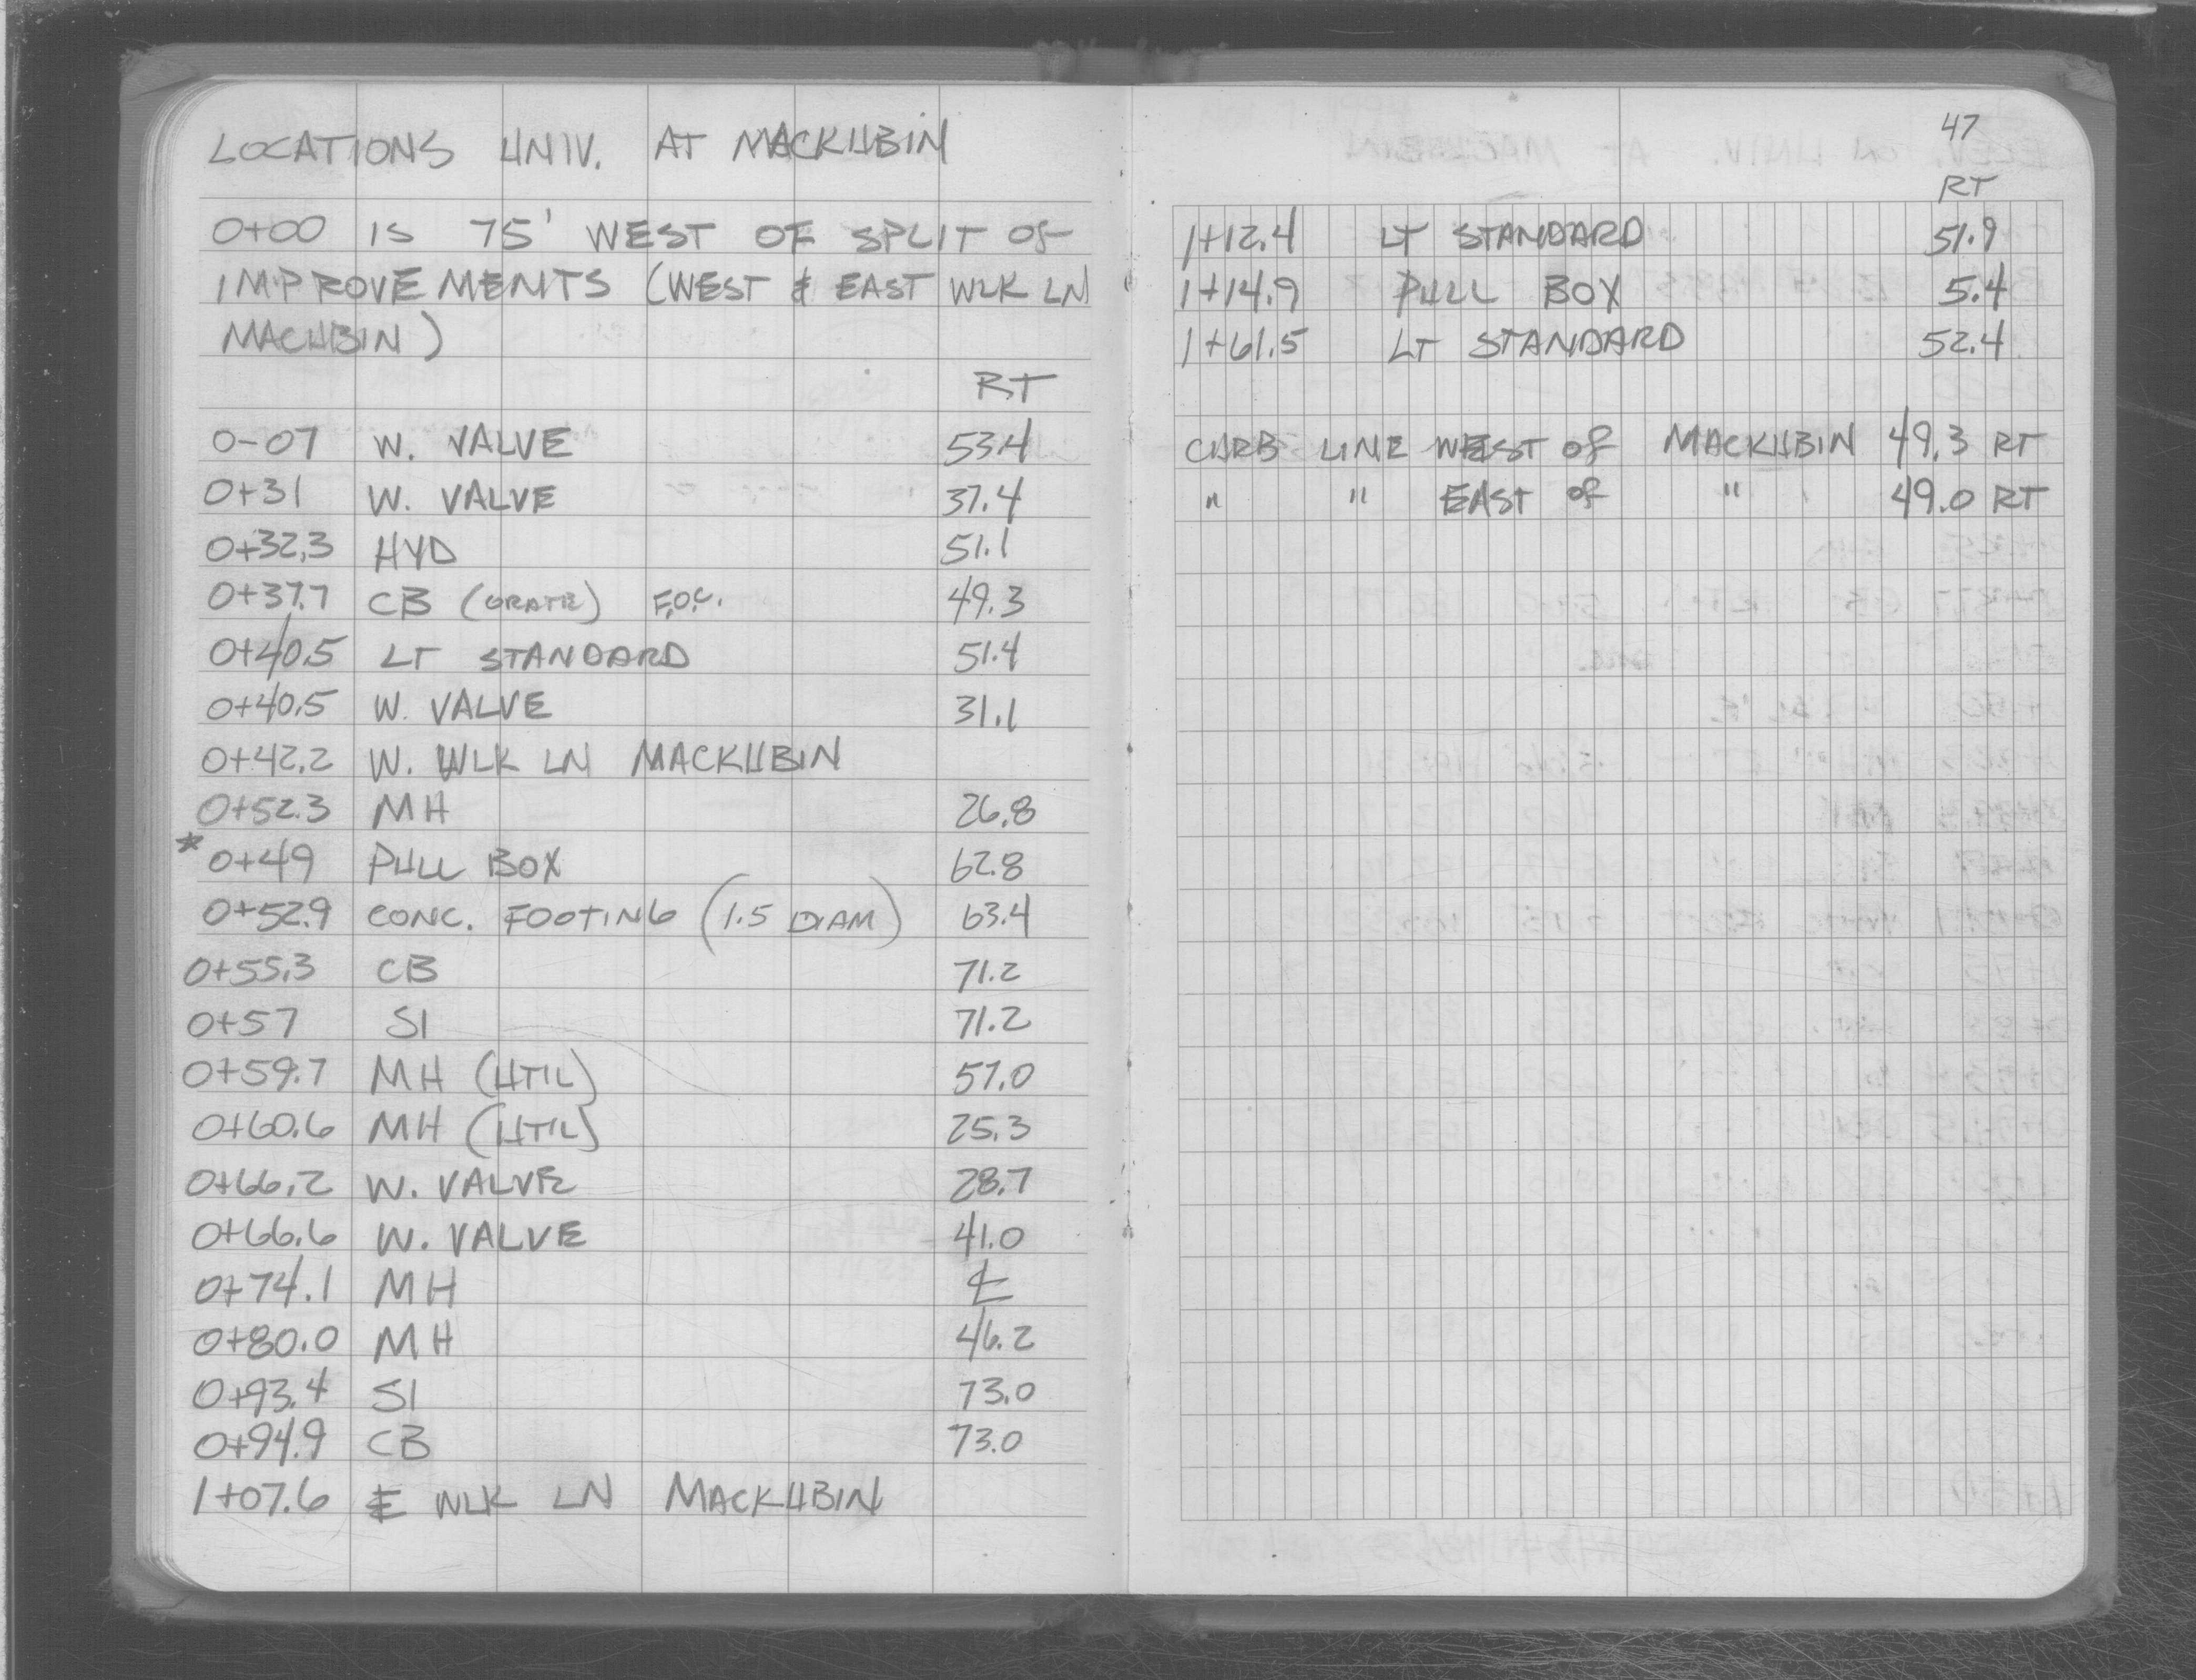 LOCATIONS UNIV. AT MACKUBIN
0+00 IS 75' WEST OF SPLIT OF
IMPROVEMENTS (WEST & EAST WLK LN
MACUBIN)
RT
0-07 W. VALVE 53.4
0+31 W. VALVE 37.4
0+32.3 HYD 51.1
0+37.7 CB (GRATE) F.O.C. 49.3
0+40.5 LT STANDARD 51.4
0+40.5 W. VALVE 31.1
0+42.2 W. WLK LN MACKUBIN
0+52.3 MH 26.8
* 0+49 PULL BOX 62.8
0+52.9 CONC. FOOTING (1.5 DIAM) 63.4
0+55.3 CB 71.2
0+57 SI 71.2
0+59.7 MH (UTIL) 57.0
0+60.6 MH (UTIL) 25.3
0+66.2 W. VALVE 28.7
0+66.6 W. VALVE 41.0
0+74.1 MH ℄
0+80.0 MH 46.2
0+93.4 SI 73.0
0+94.9 CB 73.0
1+07.6 E WLK LN MACKUBIN
47
RT
1+12.4 LT STANDARD 51.9
1+14.9 PULL BOX 5.4
1+61.5 LT STANDARD 52.4
CURB LINE WEST OF MACKUBIN 49.3 RT
" " EAST OF " 49.0 RT